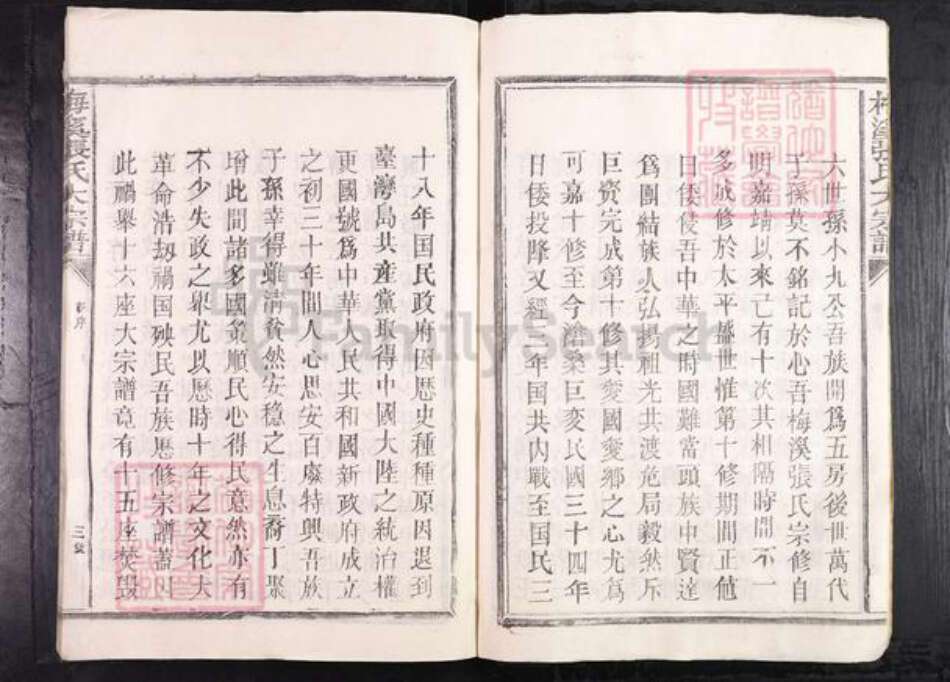 六世孫小九公吾族開爲五房後世萬代
子孫莫不銘記於心吾梅溪張氏宗修自
明嘉靖以來已有十次其相隔時間不一
多成修於太平盛世惟第十修期間正值
日倭侵吾中華之時國難當頭族中賢達
爲團結族人弘揚祖光共渡危局毅然斥
巨資完成第十修其愛國愛鄉之心尤爲
可嘉十修至今滄桑巨变民國三十四年
日倭投降又經三年国共内戰至国民三
十八年国民政府因歷史種種原因退到
臺灣島共産黨取得中國大陸之統治權
更國號爲中華人民共和國新政府成立
之初三十年間人心思安百廢特興吾族
子孫幸得雖清貧然安穩之生息喬丁聚
增此間諸多國策順民心得民意然亦有
不少失政之舉尤以歷時十年之文化大
革命浩劫禍国殃民吾族歷修宗譜蓋因
此禍舉十六座大宗譜竟有十五座焚毀
梅溪張氏大宗譜
序
三
梅溪張氏大宗譜
FamilySearch